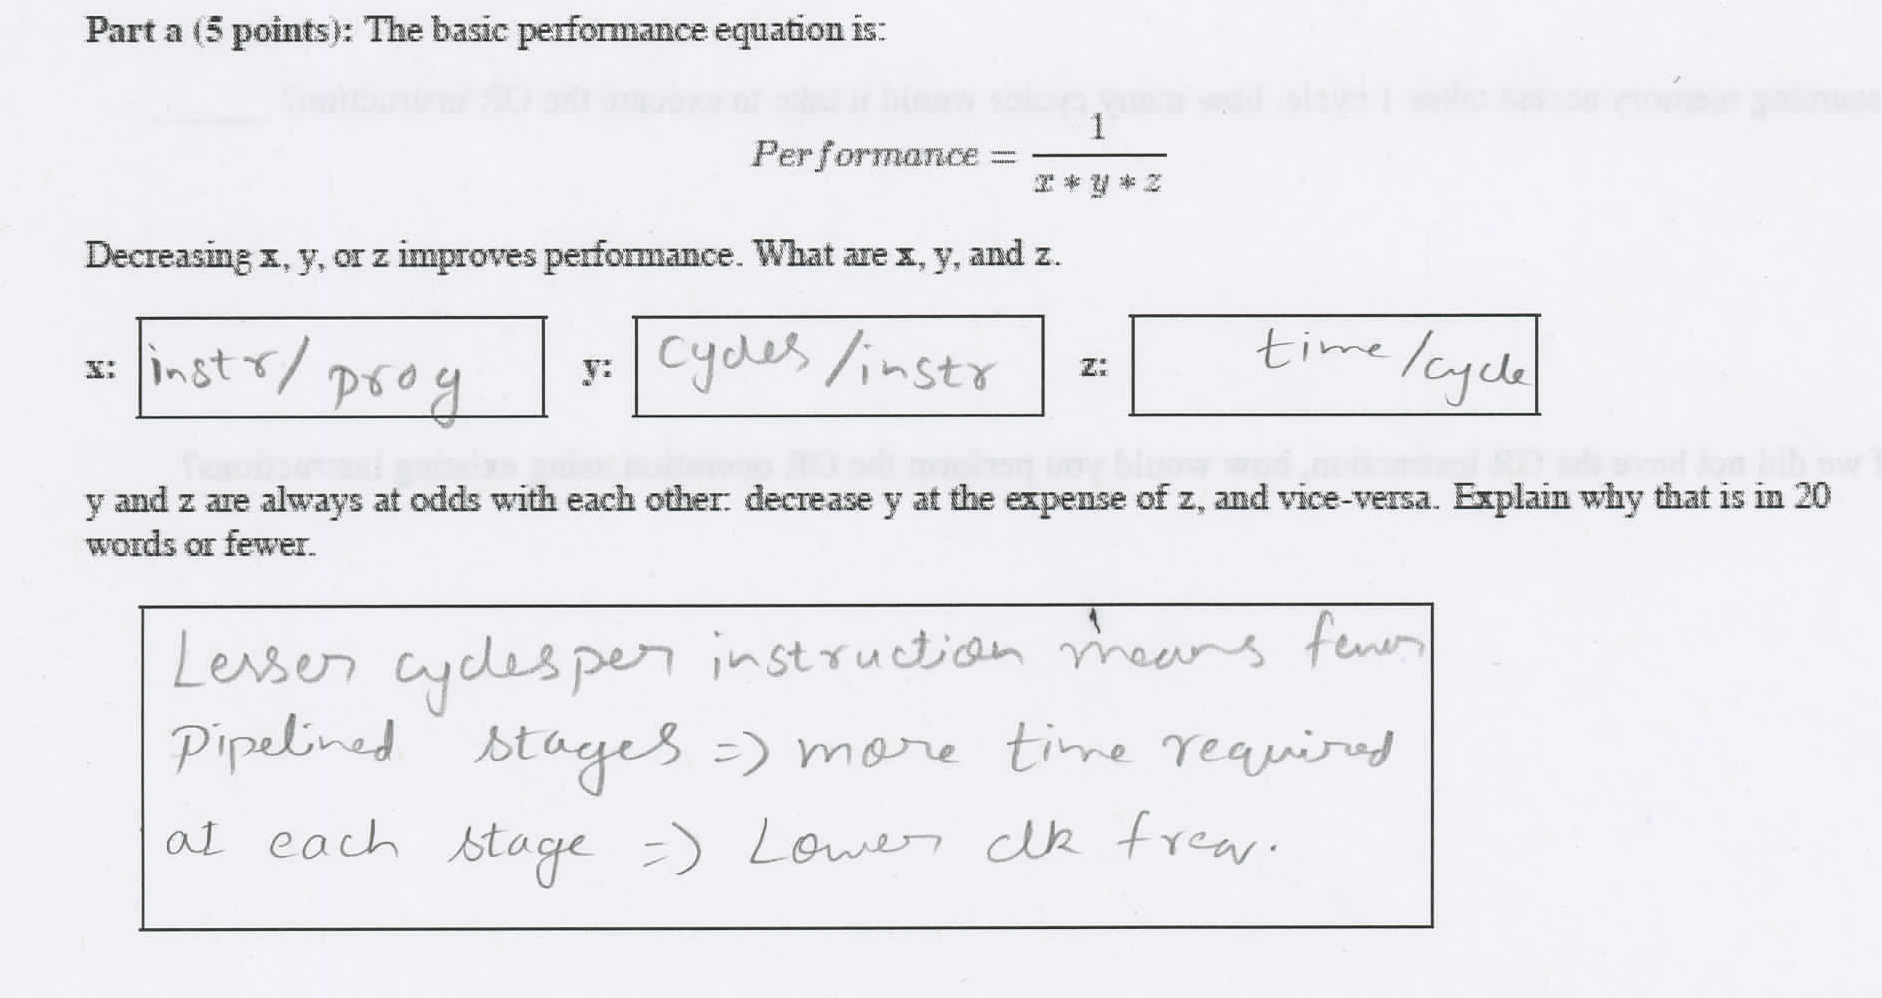 Part a (5 points): The basic performance equation is:
Performance = 1 / x * y * z
Decreasing x, y, or z improves performance. What are x, y, and z.
x: instr/ prog y: cycles /instr z: time /cycle
y and z are always at odds with each other: decrease y at the expense of z, and vice-versa. Explain why that is in 20
words or fewer.
Lesser cycles per instruction means fewer
Pipelined stages => more time required
at each stage => Lower clk freq.